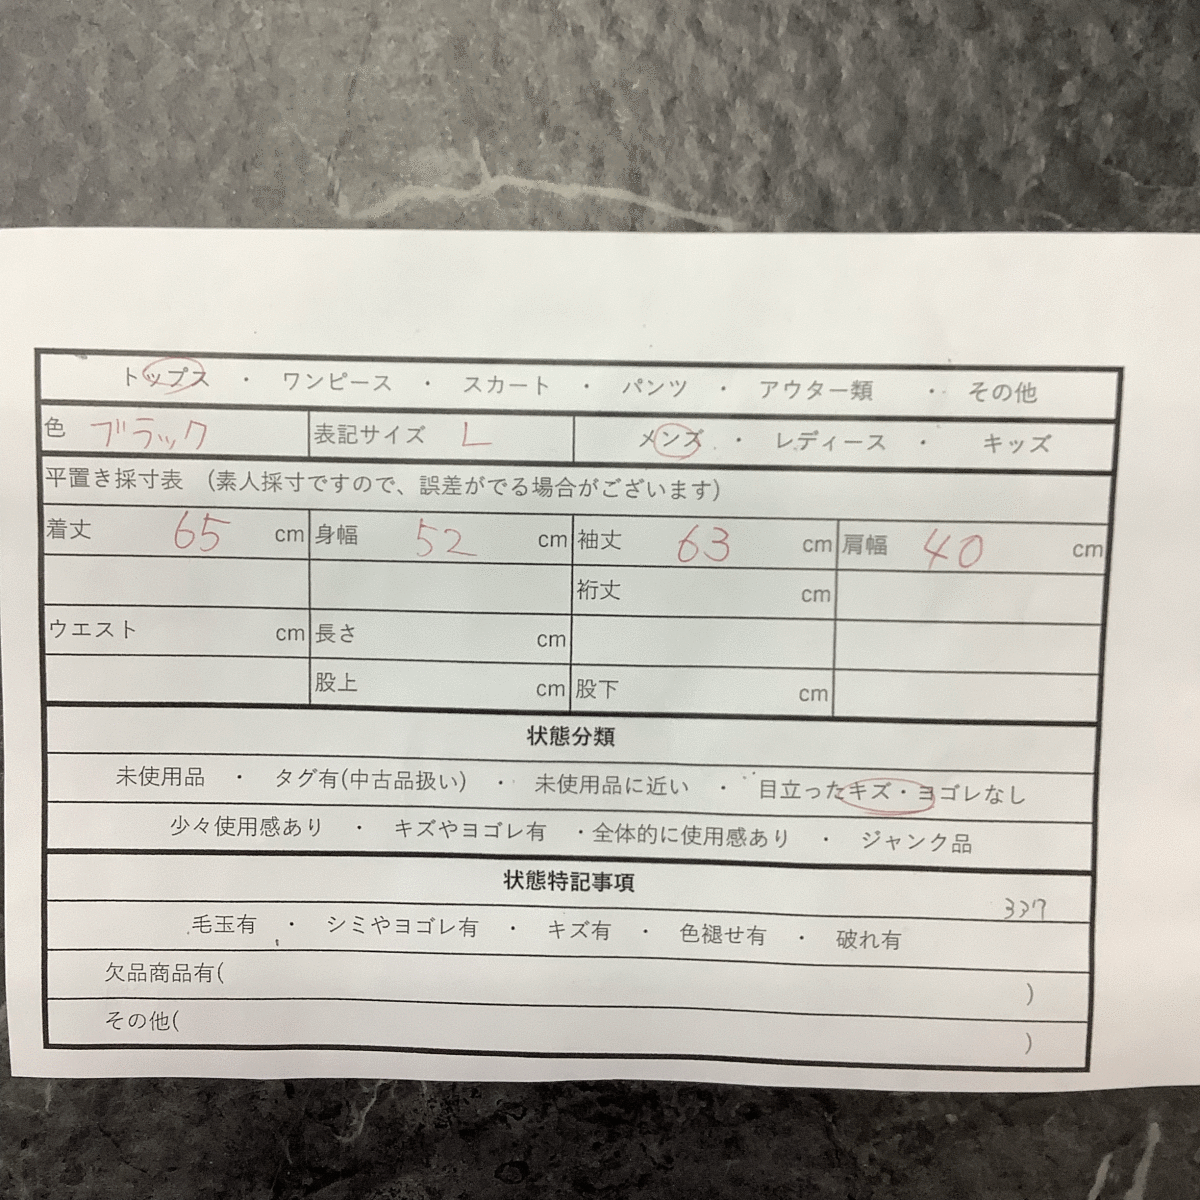 トップス ・ ワンピース ・ スカート ・ パンツ ・ アウター類 ・ その他
色 ブラック 表記サイズ L メンズ ・ レディース ・ キッズ
平置き採寸表 (素人採寸ですので、誤差がでる場合がございます)
着丈 65 cm 身幅 52 cm 袖丈 63 cm 肩幅 40 cm
裄丈 cm
ウエスト cm 長さ cm
股上 cm 股下 cm
状態分類
未使用品 ・ タグ有(中古品扱い) ・ 未使用品に近い ・ 目立ったキズ・ヨゴレなし
少々使用感あり ・ キズやヨゴレ有 ・全体的に使用感あり ・ ジャンク品
状態特記事項
337
毛玉有 ・ シミやヨゴレ有 ・ キズ有 ・ 色褪せ有 ・ 破れ有
欠品商品有( )
その他( )